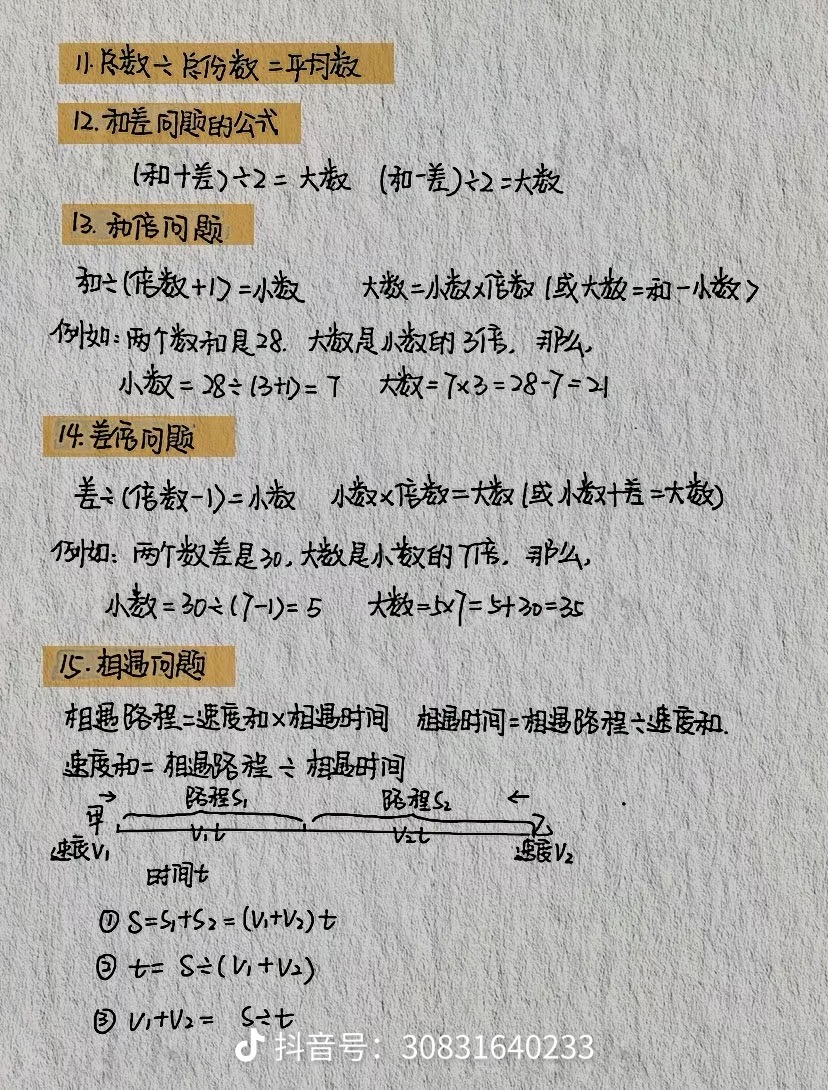 11.总数÷总份数=平均数
12.和差问题的公式
(和+差)÷2=大数 (和-差)÷2=大数
13.和倍问题
和÷(倍数+1)=小数 大数=小数×倍数(或大数=和-小数>
例如:两个数和是28.大数是小数的3倍,那么,
小数=28÷(3+1)=7 大数=7×3=28-7=21
14.差倍问题
差÷(倍数-1)=小数 小数×倍数=大数(或小数+差=大数)
例如:两个数差是30,大数是小数的7倍,那么,
小数=30÷(7-1)=5 大数=5×7=5+30=35
15.相遇问题
相遇路程=速度和×相遇时间 相遇时间=相遇路程÷速度和.
速度和=相遇路程÷相遇时间
→ 路程S₁ 路程S₂ ←
甲 V₁t V₂t 乙
速度V₁ 速度V₂
时间t
① S=S₁+S₂=(V₁+V₂)t
② t=S÷(V₁+V₂)
③ V₁+V₂= S÷t
抖音号:30831640233